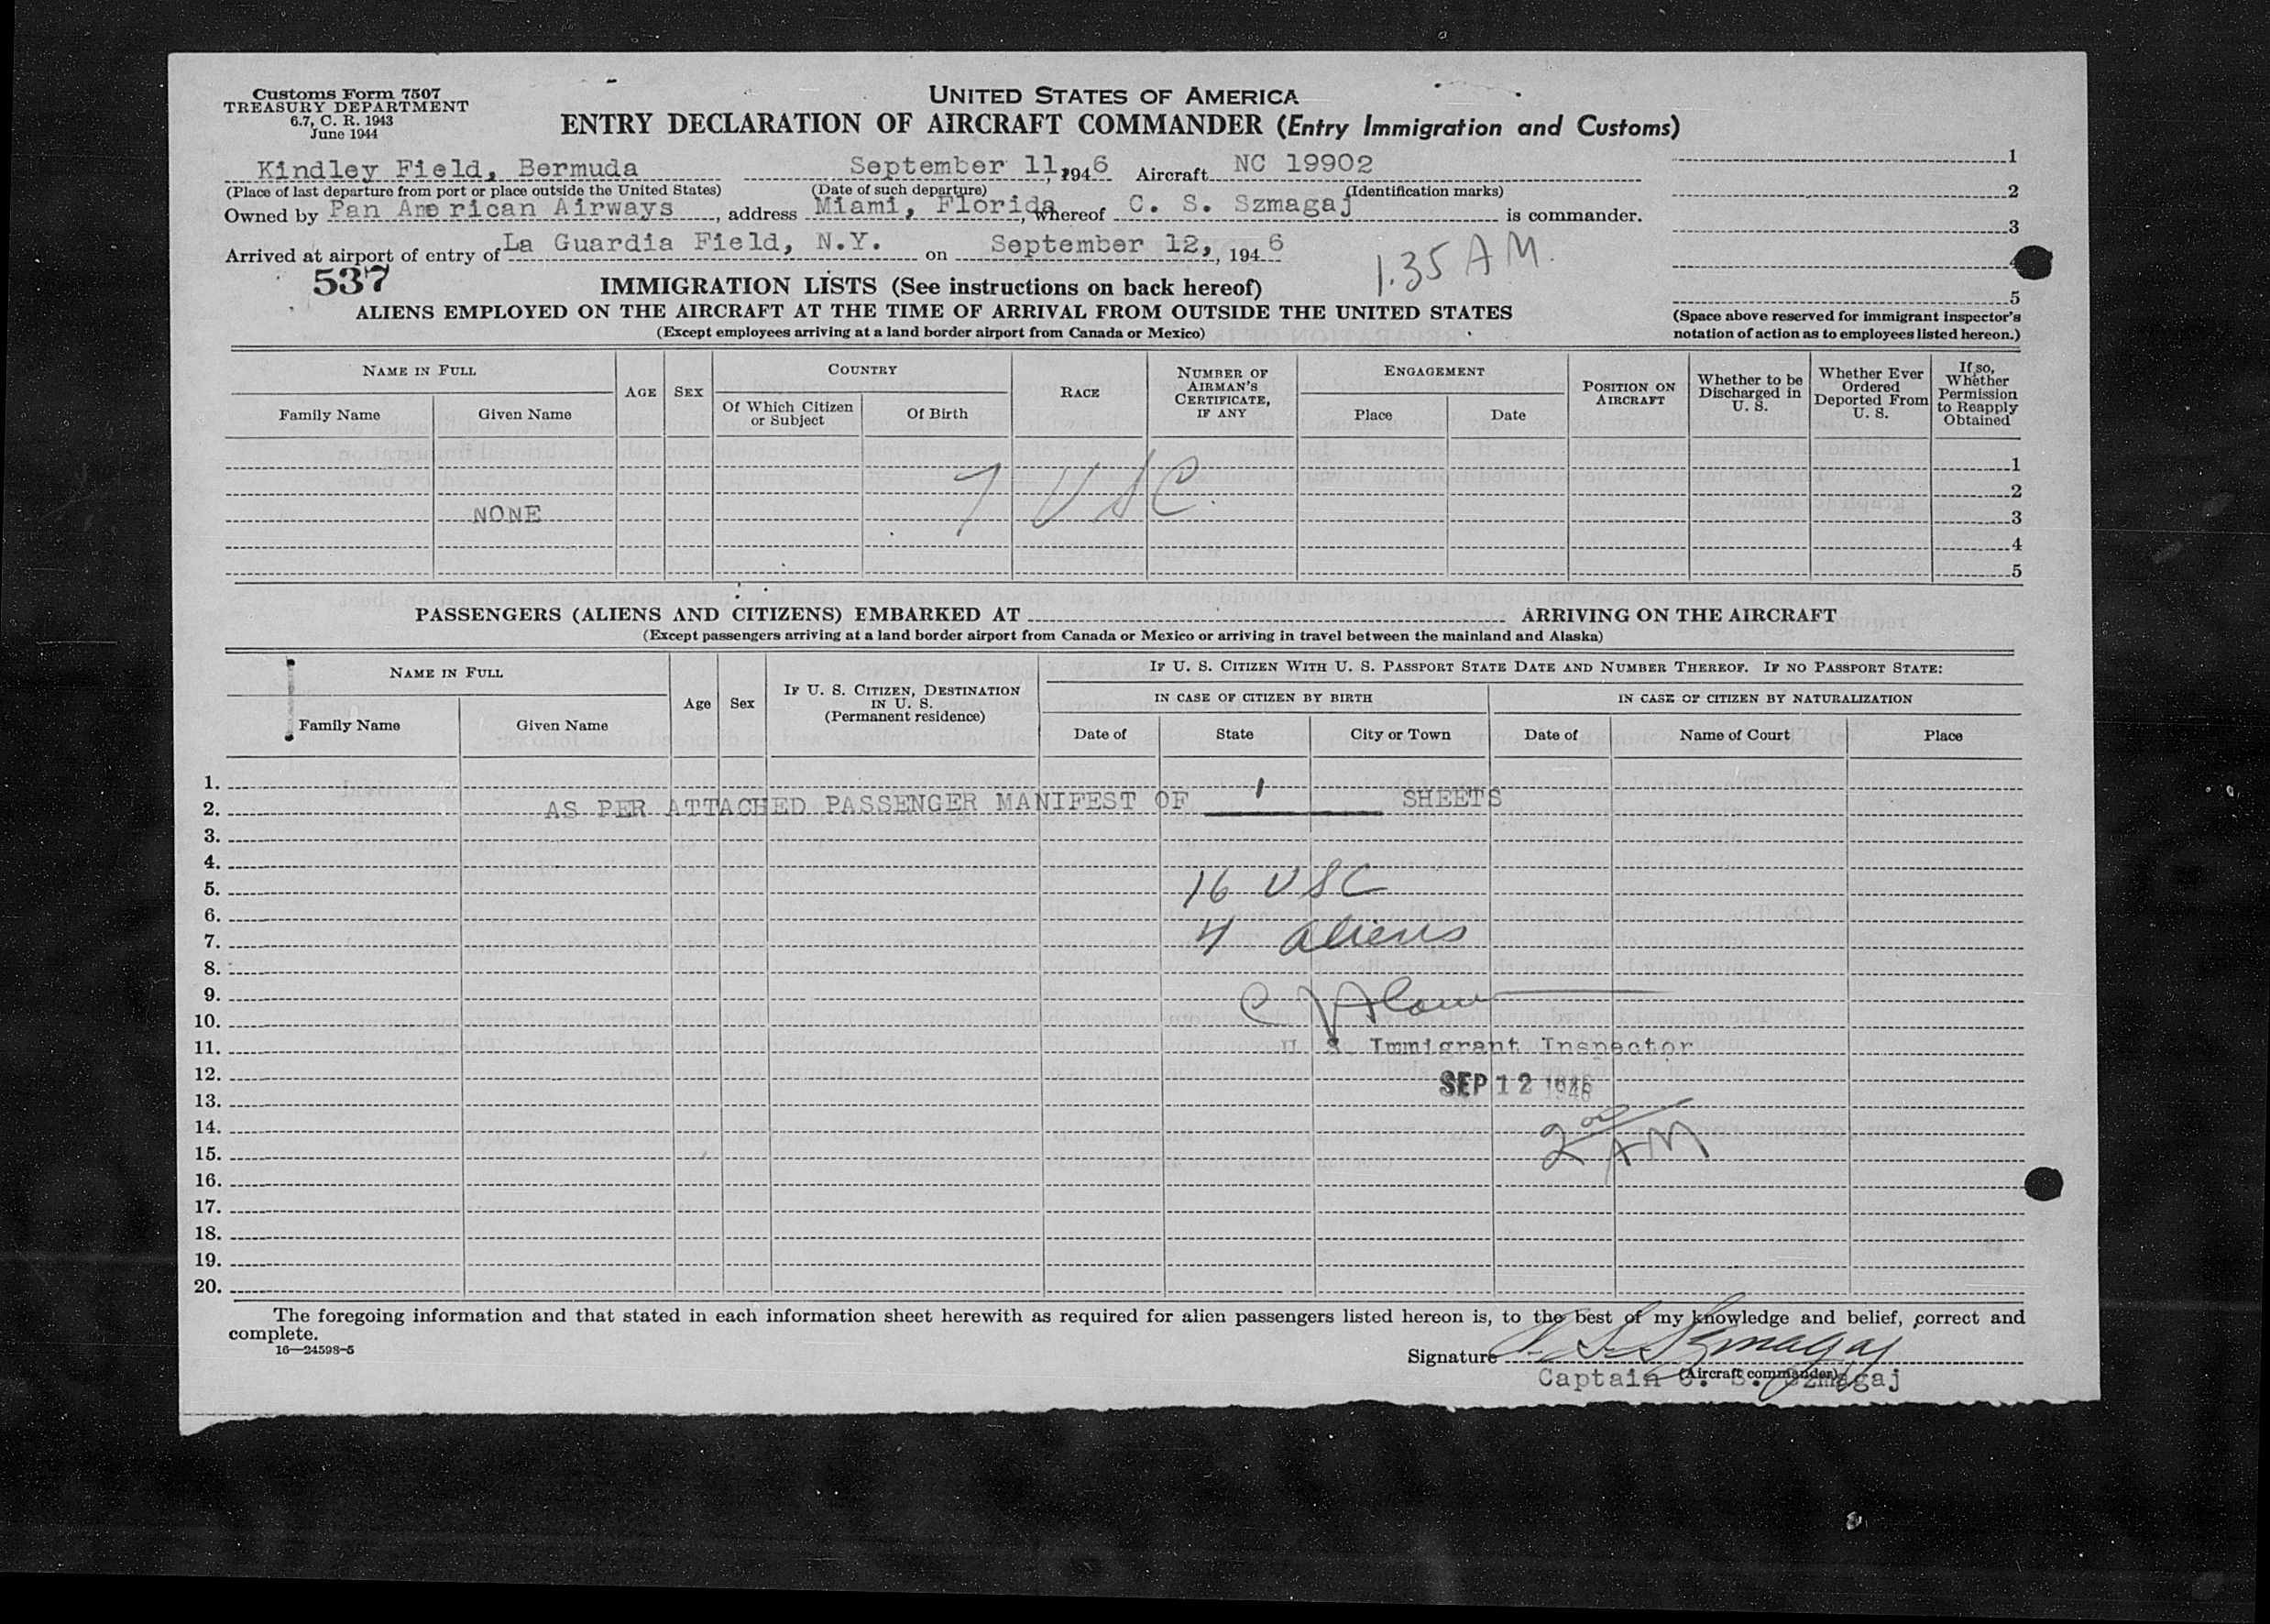 Customs Form 7507
TREASURY DEPARTMENT
6.7, C. R. 1943
June 1944
UNITED STATES OF AMERICA
ENTRY DECLARATION OF AIRCRAFT COMMANDER (Entry Immigration and Customs)
Kindley Field, Bermuda September 11, 1946 Aircraft NC 19902
(Place of last departure from port or place outside the United States) (Date of such departure) (Identification marks)
Owned by Pan American Airways, address Miami, Florida, whereof C. S. Szmagaj is commander.
Arrived at airport of entry of La Guardia Field, N.Y. on September 12, 1946 1.35 AM.
1
2
3
4
5
537
IMMIGRATION LISTS (See instructions on back hereof)
ALIENS EMPLOYED ON THE AIRCRAFT AT THE TIME OF ARRIVAL FROM OUTSIDE THE UNITED STATES
(Except employees arriving at a land border airport from Canada or Mexico)
(Space above reserved for immigrant inspector's
notation of action as to employees listed hereon.)
NAME IN FULL
Family Name
Given Name
AGE
SEX
COUNTRY
Of Which Citizen
or Subject
Of Birth
RACE
NUMBER OF
AIRMAN'S
CERTIFICATE,
IF ANY
ENGAGEMENT
Place
Date
POSITION ON
AIRCRAFT
Whether to be
Discharged in
U. S.
Whether Ever
Ordered
Deported From
U. S.
If so,
Whether
Permission
to Reapply
Obtained
1
2
NONE 7 USC 3
4
5
PASSENGERS (ALIENS AND CITIZENS) EMBARKED AT ARRIVING ON THE AIRCRAFT
(Except passengers arriving at a land border airport from Canada or Mexico or arriving in travel between the mainland and Alaska)
NAME IN FULL
Family Name
Given Name
Age
Sex
IF U. S. CITIZEN, DESTINATION
IN U. S.
(Permanent residence)
IF U. S. CITIZEN WITH U. S. PASSPORT STATE DATE AND NUMBER THEREOF. IF NO PASSPORT STATE:
IN CASE OF CITIZEN BY BIRTH
IN CASE OF CITIZEN BY NATURALIZATION
Date of
State
City or Town
Date of
Name of Court
Place
1.
2. AS PER ATTACHED PASSENGER MANIFEST OF 1 SHEETS
3.
4.
5. 16 USC
6.
7. 4 aliens
8.
9.
10.
11. U. S. Immigrant Inspector
12. SEP 12 1946
13.
14.
15. 2 00 AM
16.
17.
18.
19.
20.
The foregoing information and that stated in each information sheet herewith as required for alien passengers listed hereon is, to the best of my knowledge and belief, correct and
complete.
16—24598-5
Signature C. S. Szmagaj
(Aircraft commander)
Captain C. S. Szmagaj